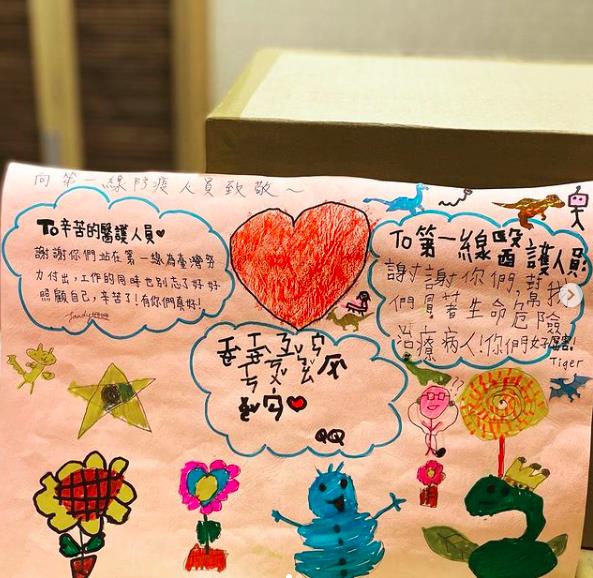 向第一線防疫人員致敬~
To辛苦的醫護人員♥
謝謝你們站在第一線為臺灣努
力付出,工作的同時也別忘了好好
照顧自己,辛苦了!有你們真好!
To第一線醫護人員:
謝謝你們,幫我
們冒著生命危險
治療病人!你們好厲害!
Tiger
QQ